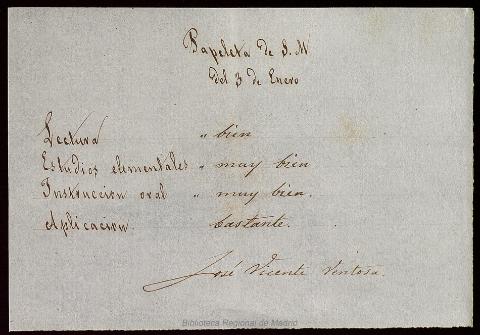 Papeleta de S. M
del 3 de Enero
Lectura " bien
Estudios elementales " muy bien
Instruccion oral " muy bien.
Aplicacion. bastante.
José Vicente Ventosa.
Biblioteca Regional de Madrid